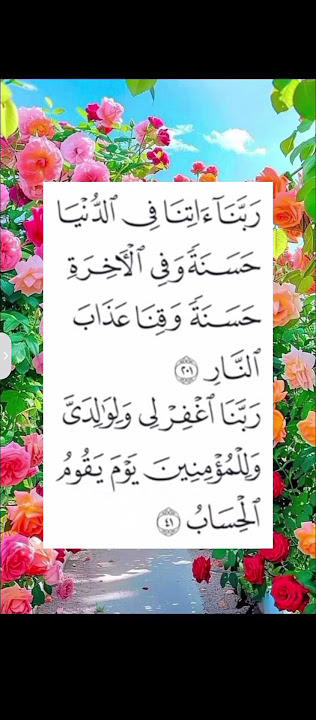 رَبَّنَآ ءَاتِنَا فِى ٱلدُّنْيَا
حَسَنَةً وَفِى ٱلْأَخِرَةِ
حَسَنَةً وَقِنَا عَذَابَ
ٱلنَّارِ ٢٠١
رَبَّنَا ٱغْفِرْ لِى وَلِوَٰلِدَىَّ
وَلِلْمُؤْمِنِينَ يَوْمَ يَقُومُ
ٱلْحِسَابُ ٤١